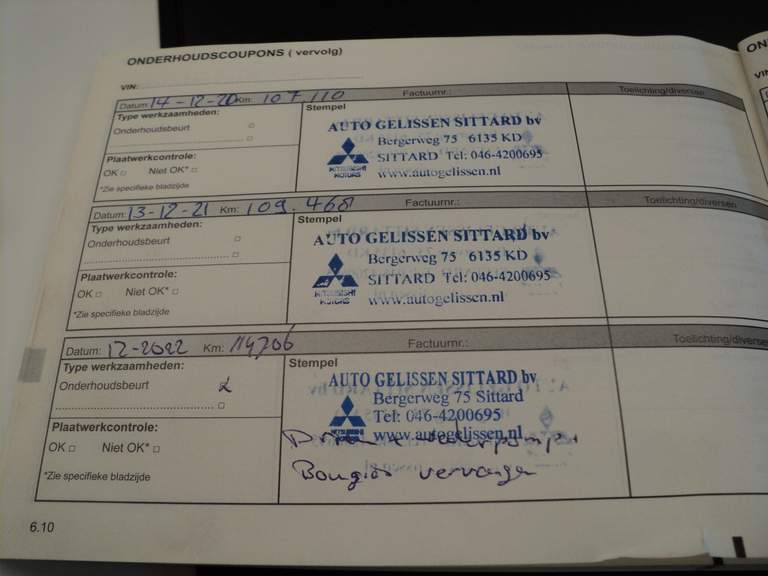 ONDERHOUDSCOUPONS ( vervolg)
VIN:
Datum: 14-12-20 Km: 107.110 Factuurnr.: Toelichting/diversen
Type werkzaamheden:
Onderhoudsbeurt
Plaatwerkcontrole:
OK Niet OK*
*Zie specifieke bladzijde
Stempel
AUTO GELISSEN SITTARD bv
Bergerweg 75 6135 KD
SITTARD Tel: 046-4200695
www.autogelissen.nl
MITSUBISHI
MOTORS
Datum: 13-12-21 Km: 109.468 Factuurnr.: Toelichting/diversen
Type werkzaamheden:
Onderhoudsbeurt
Plaatwerkcontrole:
OK Niet OK*
*Zie specifieke bladzijde
Stempel
AUTO GELISSEN SITTARD bv
Bergerweg 75 6135 KD
SITTARD Tel: 046-4200695
www.autogelissen.nl
MITSUBISHI
MOTORS
Datum: 12-2022 Km: 114706 Factuurnr.: Toelichting/diverse
Type werkzaamheden:
Onderhoudsbeurt x
Plaatwerkcontrole:
OK Niet OK*
*Zie specifieke bladzijde
Stempel
AUTO GELISSEN SITTARD bv
Bergerweg 75 Sittard
Tel: 046-4200695
www.autogelissen.nl
waterpomp
Bougies vervangen
6.10
ON
VIN